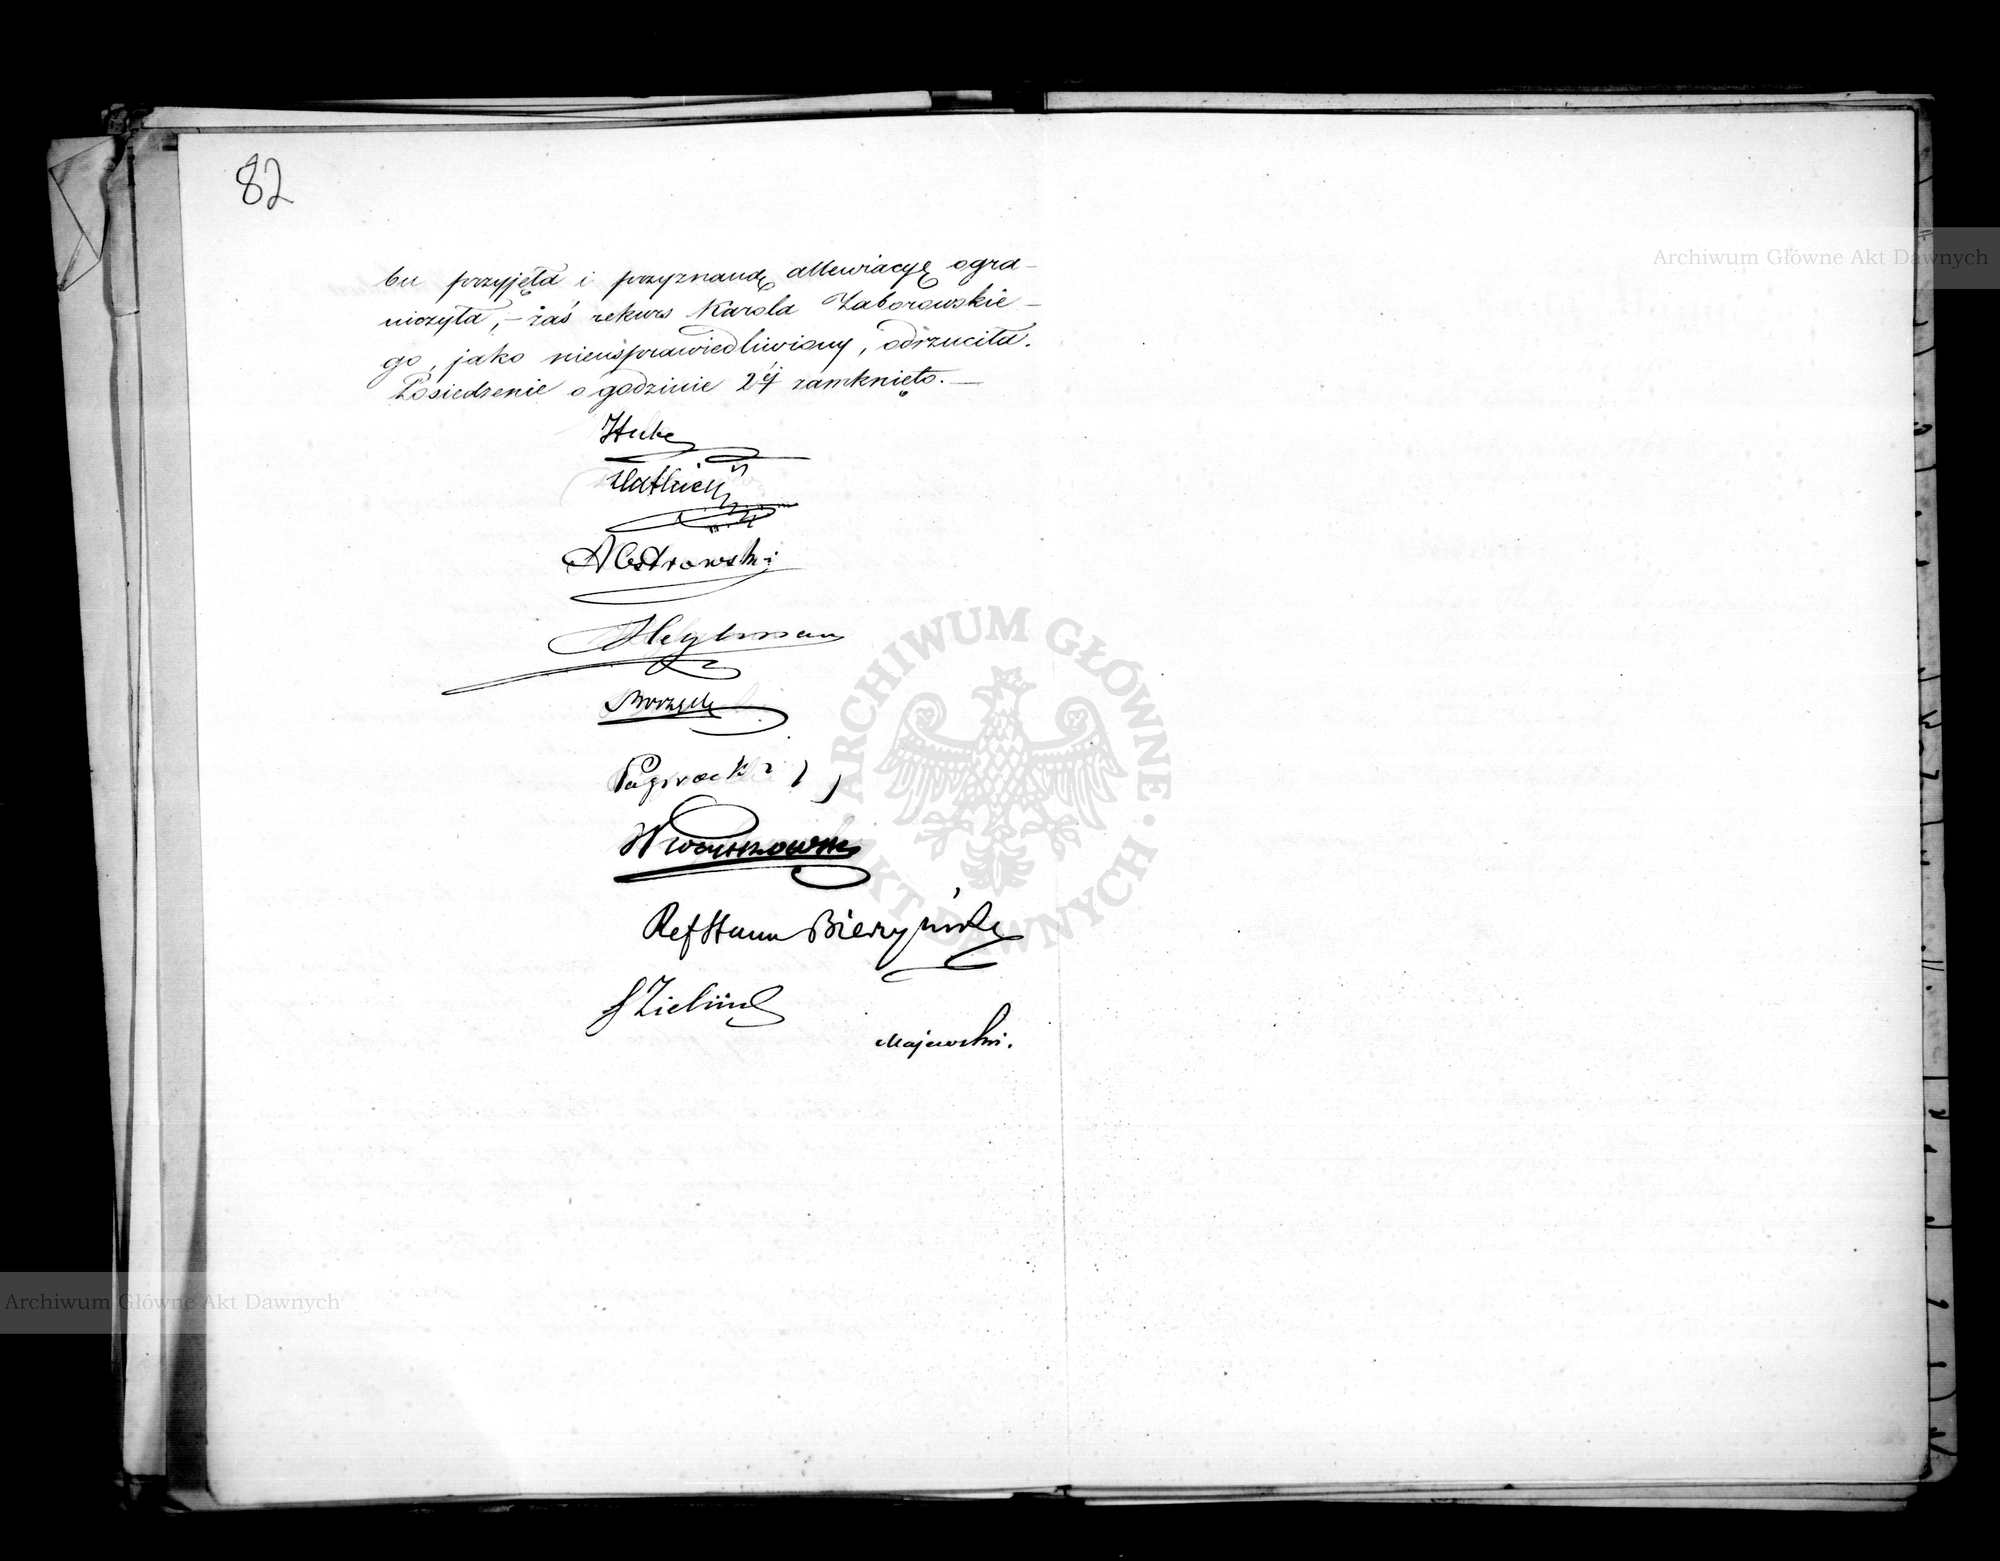 82
bu przyjęła i przyznaną allewiacyę ogra-
niczyła, – zaś rekurs Karola Zaborowskie-
go, jako nieusprawiedliwiony, odrzuciła.
Posiedzenie o godzinie 2ej zamknięto. –
Hube
AOstrowski
Heylman
Paprocki
Wwoyszkowski
Ref Stanu Bierzyński
Majewski.
Archiwum Główne Akt Dawnych
ARCHIWUM GŁÓWNE AKT DAWNYCH
Archiwum Główne Akt Dawnych